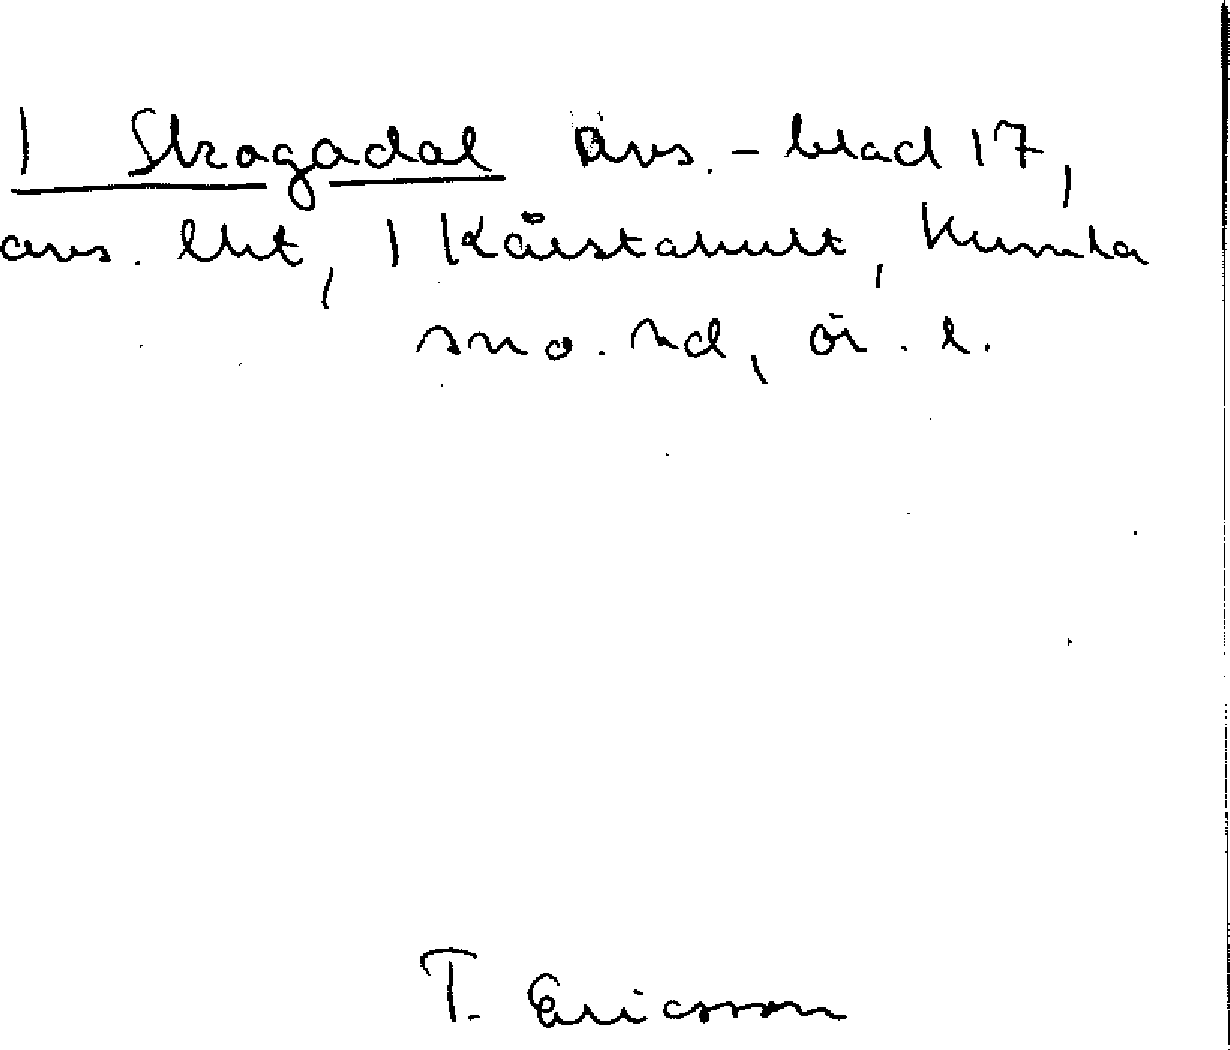 1 Skogadal avs. - blad 17,
avs. lht, 1 Kårstahult, Kumla
sno. hd, ör. l.
T. Ericsson